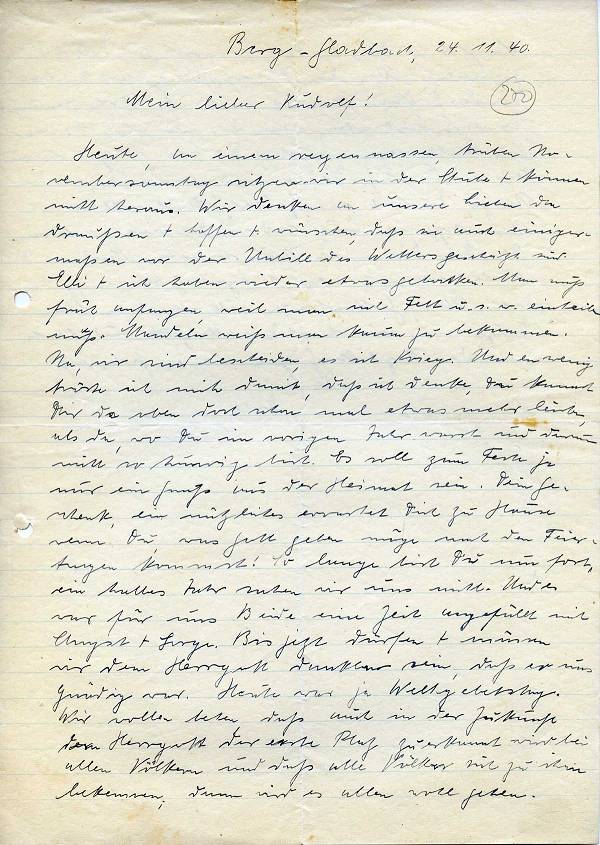 Berg-Gladbach, 24. 11. 40.
200
Mein lieber Rudolf!
Heute, an einem regennassen, trüben No-
vembersonntag sitzen wir in der Stube + können
nicht heraus. Wir denken an unsere Lieben da
draußen + hoffen + wünschen, daß sie auch einiger-
maßen vor der Unbill des Wetters geschützt sind.
Elli + ich haben wieder etwas gebacken. Man muß
früh anfangen, weil man mit Fett u. s. w. einteilen
muß. Mandeln weiß man kaum zu bekommen.
Na, wir sind bescheiden, es ist Krieg. Und ein wenig
tröste ich mich damit, daß ich denke, Du kannst
Dir da oben dort schon mal etwas mehr leisten,
als da, wo Du im vorigen Jahr warst und darum
nicht so hungrig bist. Es soll zum Feste ja
nur ein Gruß aus der Heimat sein. Dein Ge-
schenk, ein nützliches erwartet Dich zu Hause
wenn Du, was Gott geben möge nach den Feier-
tagen kommst! So lange bist Du nun fort,
ein halbes Jahr sahen wir uns nicht. Und es
war für uns Beide eine Zeit angefüllt mit
Angst + Sorge. Bis jetzt dürfen + müssen
wir dem Herrgott dankbar sein, daß er uns
gnädig war. Heute war ja Weltgebetstag.
Wir wollen beten daß auch in der Zukunft
dem Herrgott der erste Platz zuerkannt wird bei
allen Völkern und daß alle Völker sich zu ihm
bekennen, dann wird es allen wohl gehen.